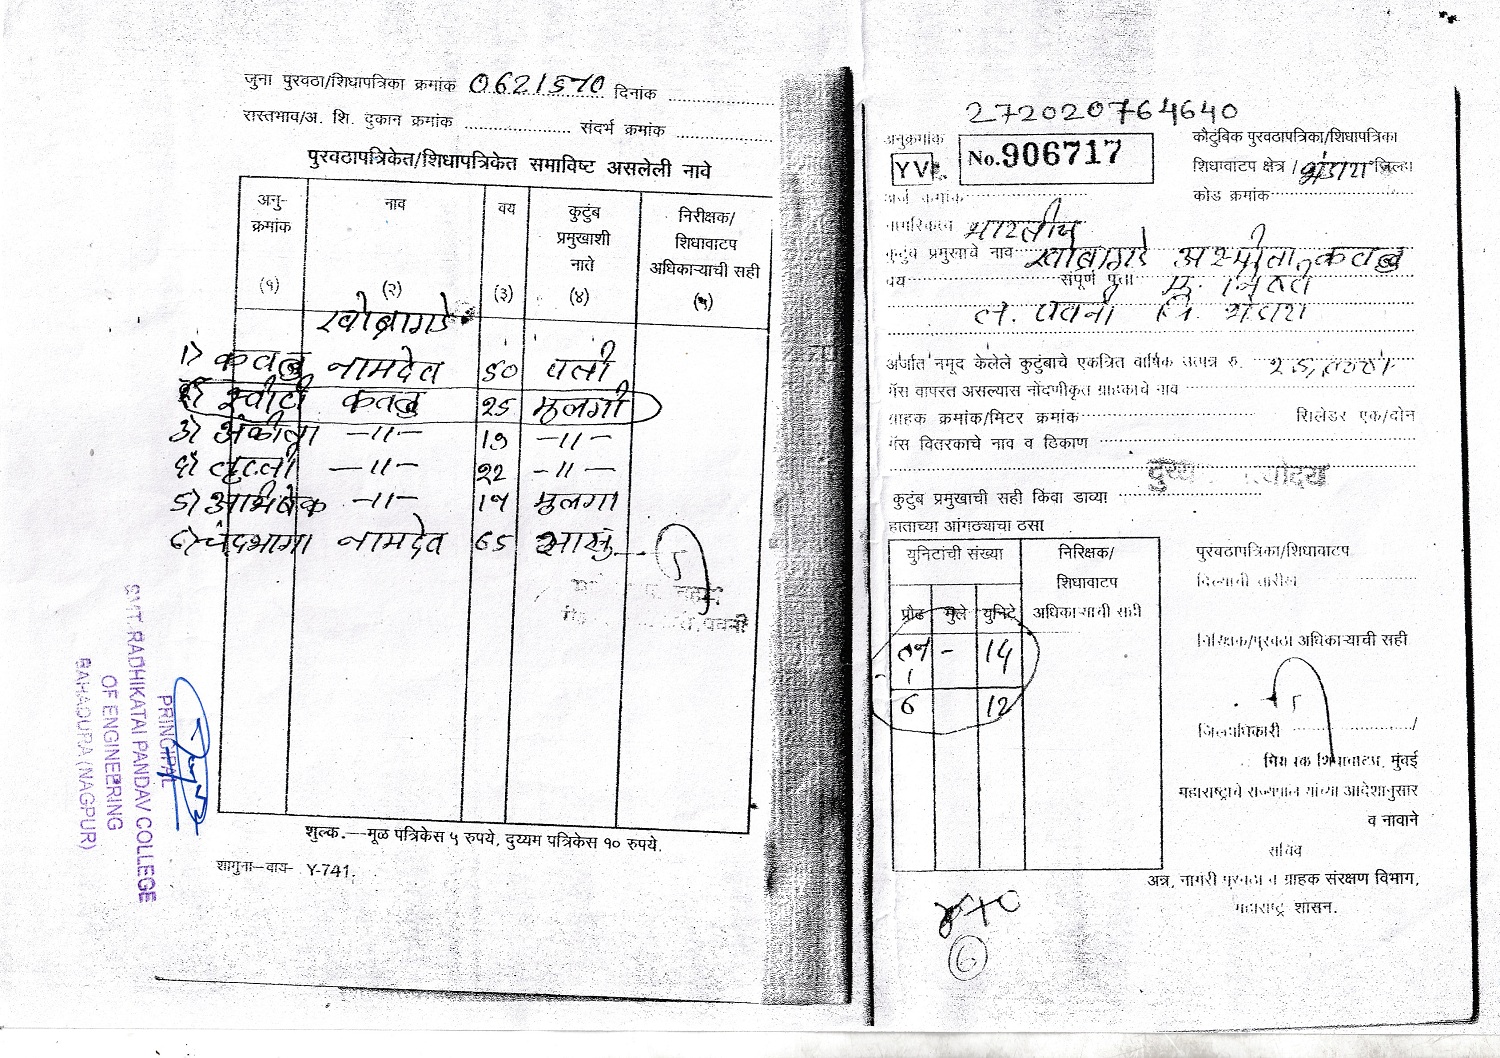 जुना पुरवठा/शिधापत्रिका क्रमांक 0621570 दिनांक
रास्तभाव/अ. शि. दुकान क्रमांक संदर्भ क्रमांक
पुरवठापत्रिकेत/शिधापत्रिकेत समाविष्ट असलेली नावे
अनु-क्रमांक नाव वय कुटुंब प्रमुखाशी नाते निरीक्षक/शिधावाटप अधिकाऱ्याची सही
(१) (२) (३) (४) (५)
खोब्रागडे
1) कवळु नामदेव ५० पती
2) स्वीटी कवळु २५ मुलगी
3) अंकीता —11— 19 —11—
—11— २२ —11—
5) अभिषेक —11— 19 मुलगा
6) चंद्रभागा नामदेव 65 सासु
पवनी
शुल्क.—मूळ पत्रिकेस ५ रुपये, दुय्यम पत्रिकेस १० रुपये.
शागुना—वाय— Y-741.
PRINCIPAL
SMT. RADHIKATAI PANDAV COLLEGE
OF ENGINEERING
BAHADURA (NAGPUR)
272020764640
अनुक्रमांक
YV No.906717
कौटुंबिक पुरवठापत्रिका/शिधापत्रिका
शिधावाटप क्षेत्र / भंडारा जिल्हा
कोड क्रमांक
अर्ज क्रमांक
नागरिकत्व भारतीय
कुटुंब प्रमुखाचे नाव खोब्रागडे अस्मीता कवळु
वय संपूर्ण पत्ता मु.
ता. पवनी जि. भंडारा
अर्जात नमूद केलेले कुटुंबाचे एकत्रित वार्षिक उत्पन्न रु.
गॅस वापरत असल्यास नोंदणीकृत ग्राहकाचे नाव
ग्राहक क्रमांक/मिटर क्रमांक सिलेंडर एक/दोन
गॅस वितरकाचे नाव व ठिकाण
कुटुंब प्रमुखाची सही किंवा डाव्या
हाताच्या आंगठ्याचा ठसा
युनिटांची संख्या निरिक्षक/
शिधावाटप
प्रौढ मुले युनिटे अधिकाऱ्याची सही
- 14
6 12
पुरवठापत्रिका/शिधावाटप
दिल्याची तारीख
निरिक्षक/पुरवठा अधिकाऱ्याची सही
जिल्हाधिकारी /
नियंत्रक शिधावाटप, मुंबई
महाराष्ट्राचे राज्यपाल यांच्या आदेशानुसार
व नावाने
सचिव
अन्न, नागरी पुरवठा व ग्राहक संरक्षण विभाग,
महाराष्ट्र शासन.
6